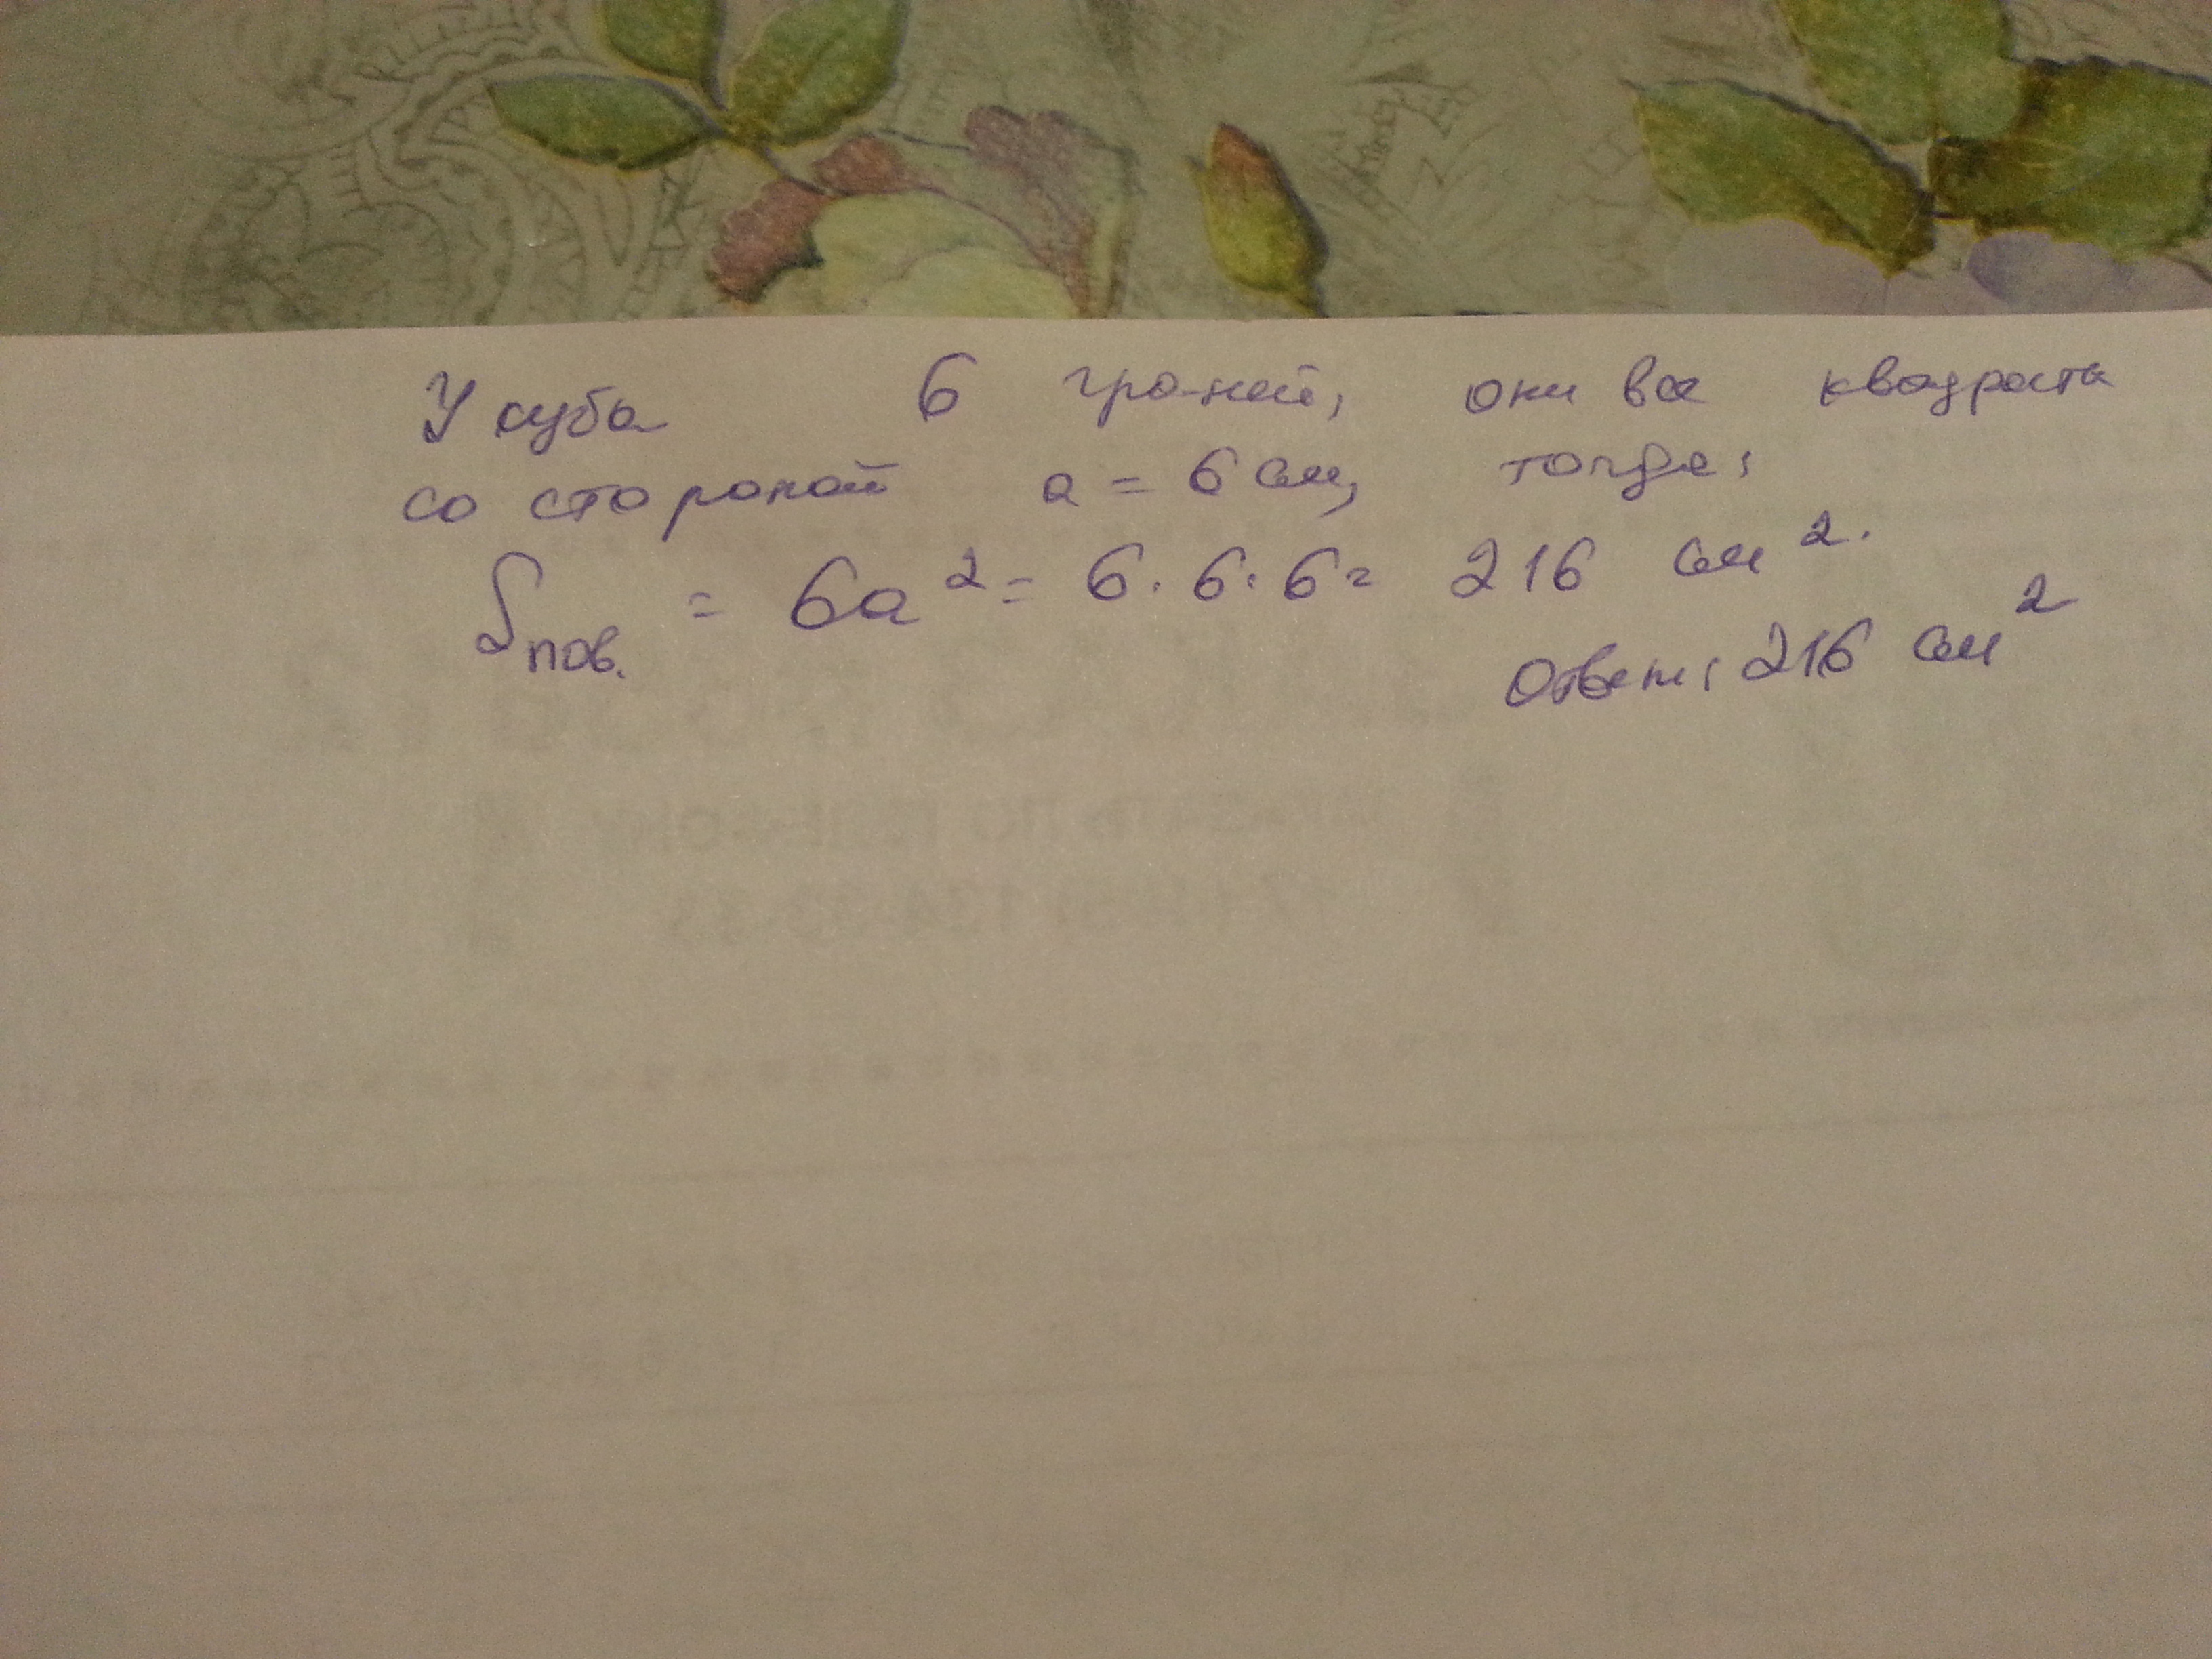 У куба 6 граней, они все квадраты
со стороной a = 6 см, тогда:
Sпов. = 6a² = 6·6·6 = 216 см².
Ответ: 216 см²